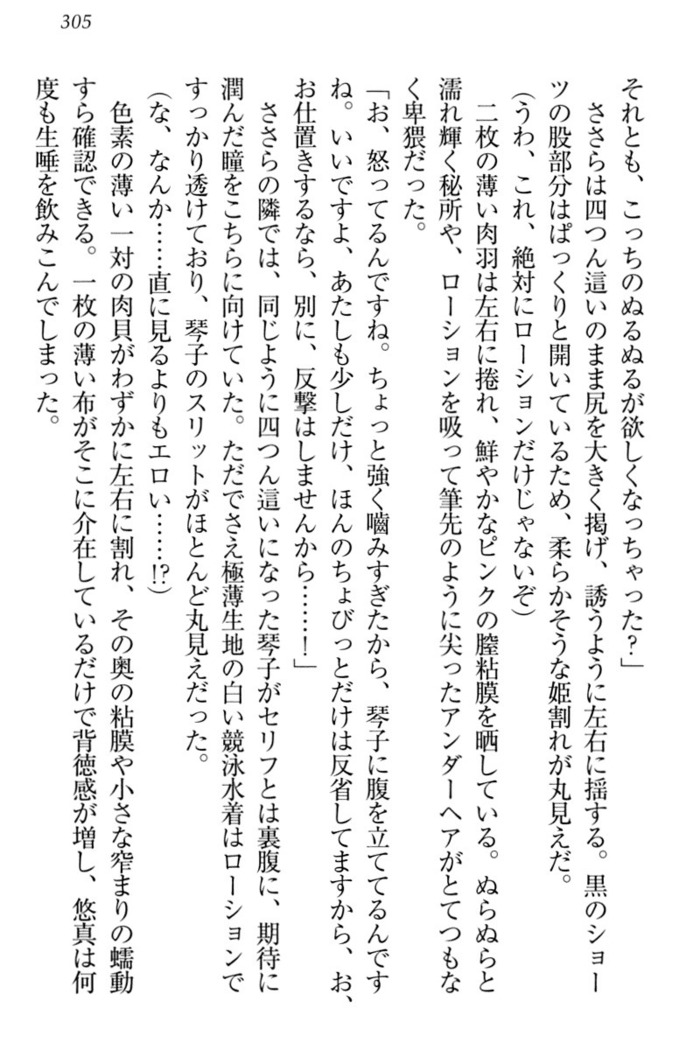 305
それとも、こっちのぬるぬるが欲しくなっちゃった？」
ささらは四つん這いのまま尻を大きく掲げ、誘うように左右に揺する。黒のショー
ツの股部分はぱっくりと開いているため、柔らかそうな姫割れが丸見えだ。
（うわ、これ、絶対にローションだけじゃないぞ）
二枚の薄い肉羽は左右に捲れ、鮮やかなピンクの膣粘膜を晒している。ぬらぬらと
濡れ輝く秘所や、ローションを吸って筆先のように尖ったアンダーヘアがとてつもな
く卑猥だった。
「お、怒ってるんですね。ちょっと強く嚙みすぎたから、琴子に腹を立ててるんです
ね。いいですよ、あたしも少しだけ、ほんのちょびっとだけは反省してますから、お、
お仕置きするなら、別に、反撃はしませんから……！」
ささらの隣では、同じように四つん這いになった琴子がセリフとは裏腹に、期待に
潤んだ瞳をこちらに向けていた。ただでさえ極薄生地の白い競泳水着はローションで
すっかり透けており、琴子のスリットがほとんど丸見えだった。
（な、なんか……直に見るよりもエロい……!?）
色素の薄い一対の肉貝がわずかに左右に割れ、その奥の粘膜や小さな窄まりの蠕動
すら確認できる。一枚の薄い布がそこに介在しているだけで背徳感が増し、悠真は何
度も生唾を飲みこんでしまった。